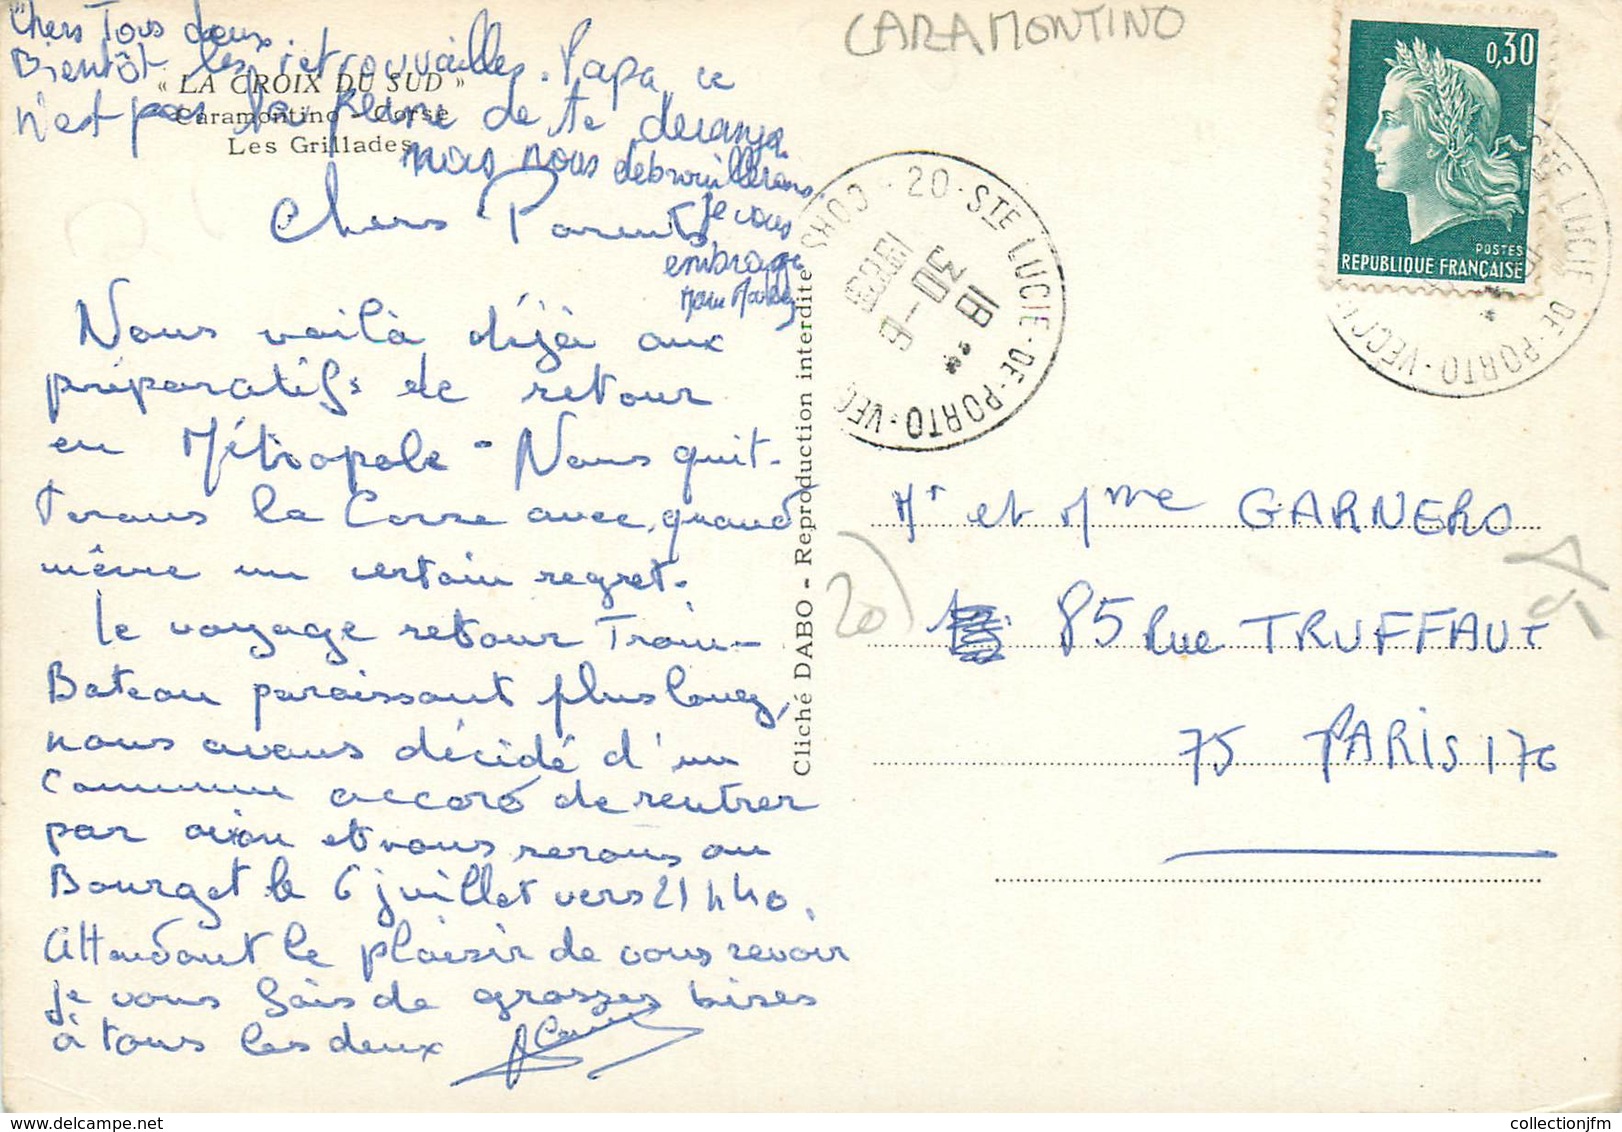 Chers Tous deux.
Bientôt les retrouvailles. Papa ce
n'est pas la peine de te deranger
nous nous debrouillerons
je vous
embrasse
« LA CROIX DU SUD »
Caramontino - Corse
Les Grillades
Chers Parents,
Nous voilà déjà aux
préparatifs de retour
en Métropole - Nous quit-
terons la Corse avec, quand
même un certain regret.
Le voyage retour Train-
Bateau paraissant plus long,
nous avons décidé d'un
commun accord de rentrer
par avion et vous serons au
Bourget le 6 juillet vers 21 h 40.
Attendant le plaisir de vous revoir
je vous fais de grosses bises
à tous les deux
Cliché DABO - Reproduction interdite
CARAMONTINO
20 - STE LUCIE-DE-PORTO-VEC
CORS
18 H 30
0,30
POSTES
REPUBLIQUE FRANÇAISE
STE LUCIE-DE-PORTO-VECC
20)
Mr et Mme GARNERO
85 Rue TRUFFAUT
75 PARIS 17e
collectionjfm